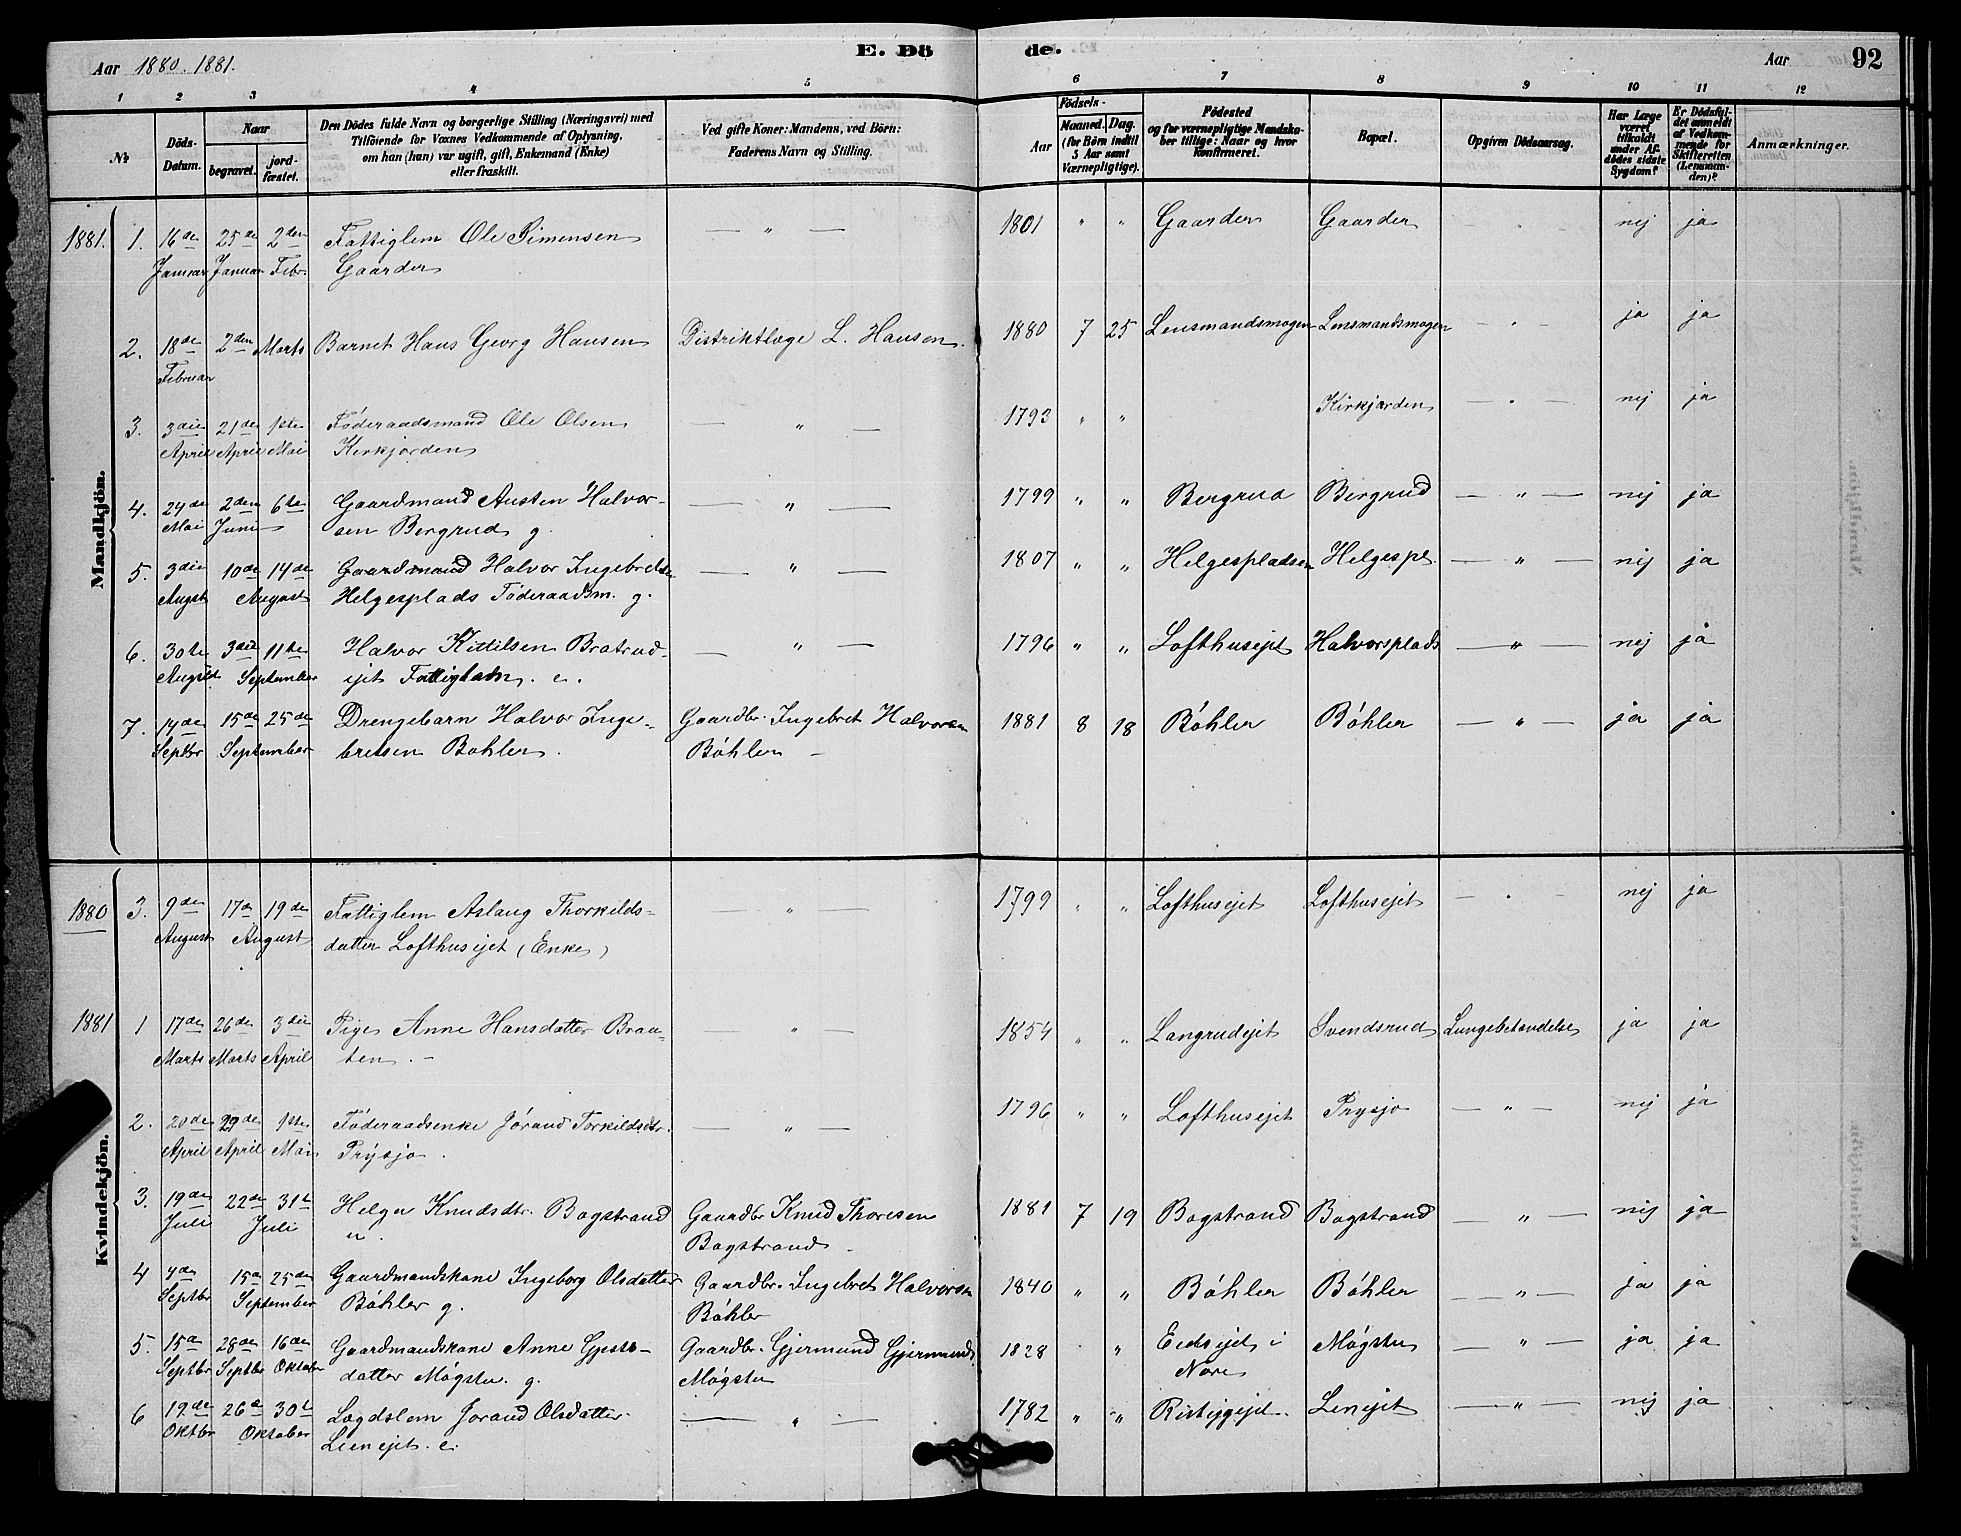 Aar 1880. 1881.
E. Dö
de.
Aar
92
1 2 3 4 5 6 7 8 9 10 11 12
№
Döds-
Datum.
Naar
begravet.
jord-
fæstet.
Den Dödes fulde Navn og borgerlige Stilling (Næringsvei) med
Tilföiende for Voxnes Vedkommende af Oplysning,
om han (hun) var ugift, gift, Enkemand (Enke)
eller fraskilt.
Ved gifte Koner: Mandens, ved Börn:
Faderens Navn og Stilling.
Födsels-
Aar
Maaned. Dag.
(for Börn indtil
5 Aar samt
Værnepligtige).
Födested
og for værnepligtige Mandska-
ber tillige: Naar og hvor
konfirmeret.
Bopæl.
Opgiven Dödsaarsag.
Har Læge
været
tilkaldt
under Af-
dödes sidste
Sygdom?
Er Dödsfal-
det anmeldt
af Vedkom-
mende for
Skifteretten
(Lensman-
den)?
Anmærkninger.
Mandkjön.
1881. 1. 16de 25de 2den Fattiglem Ole Simensen — " — 1801 " " Gaarder Gaarder — " — nej ja
Januar Januar Febr. Gaarder
2. 18de 2den Marts Barnet Hans Georg Hansen Distriktlæge L. Hansen. 1880 7 25 Lensmandsmogen Lensmandsmogen — " — ja ja
Februar
3. 3die 21de 1ste Föderaadsmand Ole Olsen — " — 1793 " " Kirkjorden — " — nej ja
April April Mai Kirkjorden
4. 24de 2den 6te Gaardmand Austen Halvor- — " — 1799 " " Bergrud Bergrud — " — nej ja
Mai Juni sen Bergrud g.
5. 3die 10de 14de Gaardmand Halvor Ingebretsen — " — 1807 " " Helgespladsen Helgespl. — " — nej ja
Augst August Helgesplads Föderaadsm. g.
6. 30te 3die 11te Halvor Kittilsen Bratrud- — " — 1796 " " Lofthusejet Halvorsplads — " — nej ja
August September ejet Fattiglem. e.
7. 14de 15de 25de Drengebarn Halvor Inge- Gaardbr. Ingebret Halvorsen 1881 8 18 Böhler Böhler — " — ja ja
Septbr September bretsen Bøhler. Böhler —
Kvindekjön.
1880 3. 9de 17de 19de Fattiglem Aslaug Thorkilds- — " — 1799 " " Lofthusejet Lofthusejet — " — nej ja
August August datter Lofthusejet (Enke)
1881 1 17de 26de 3die Pige Anne Hansdatter Braa- — " — 1854 " " Langrudejet Svendsrud Lungebetændelse ja ja
Marts Marts April ten. —
2. 20de 29de 1ste Föderaadsenke Jørand Torkildsdtr. — " — 1796 " " Lofthusejet Prysjo — " — nej ja
April April Mai Prysjo.
3. 19de 22de 31te Helga Knudsdtr. Bagstrand Gaardbr. Knud Thoresen 1881 7 19 Bagstrand Bagstrand — " — nej ja
Juli Juli u. Bagstrand —
4 4de 15de 25de Gaardmandskone Ingeborg Olsdatter Gaardbr. Ingebret Halvorsen 1840 " " Böhler Böhler — " — ja ja
Septbr September Böhler g. Böhler
5. 15de 28de 16de Gaardmandskone Anne Gjests- Gaardbr. Gjermund Gjermunds 1828 " " Eidsejet i Møgster — " — ja ja
Septbr Septbr Oktober datter Møgster. g. Møgster Nore
6 19de 26de 30te Lægdslem Jorand Olsdatter — " — 1782 " " Lienejet — " — nej ja
Oktbr Oktober Lienejet. e.